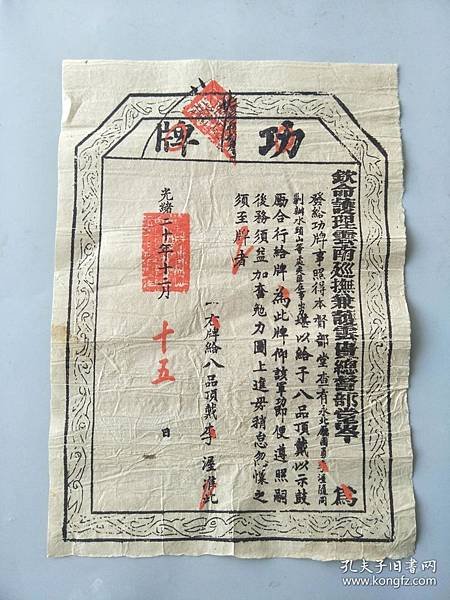 功牌
欽命護理雲南巡撫兼護雲貴總督部堂
為
發給功牌事照得本督部堂查有永北廳團勇李
剿辦水頭山等處夷匪
以給予八品頂戴以示鼓
勵合行給牌為此牌仰該軍功即便遵照嗣
後務須益加奮勉力圖上進毋稍怠忽懍之
須至牌者
右牌給八品頂戴李
准此
光緒二十年十二月十五日
孔夫子旧书网
www.kongfz.com